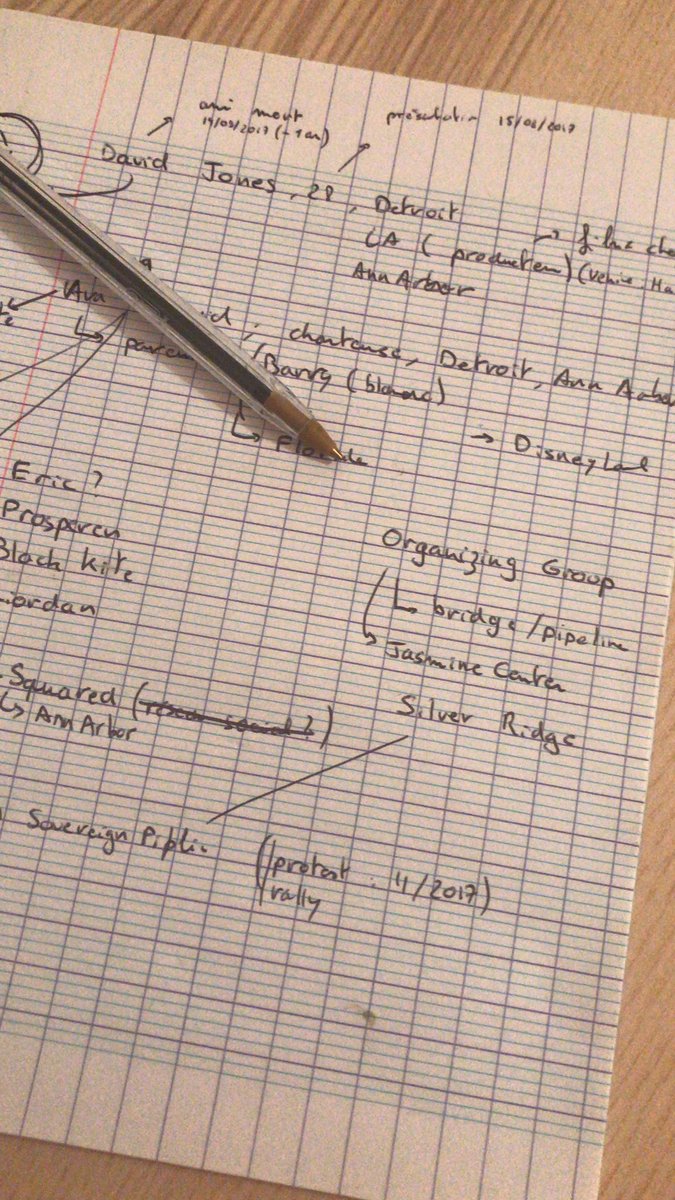 ami mort
présentation 15/08/2017
19/09/2017 (-1 an)
David Jones, 28, Detroit
LA (production) (Venice
Ann Arbor
Ava
chanteuse, Detroit, Ann Arbor
paren
/Barry (blanc)
→ Disneyland
Eric ?
Prosperen
Black kite
Jordan
Organizing Group
↳ bridge/pipeline
Jasmine Center
Squared
↳ Ann Arbor
Silver Ridge
Sovereign
(protest : 11/2017)
rally